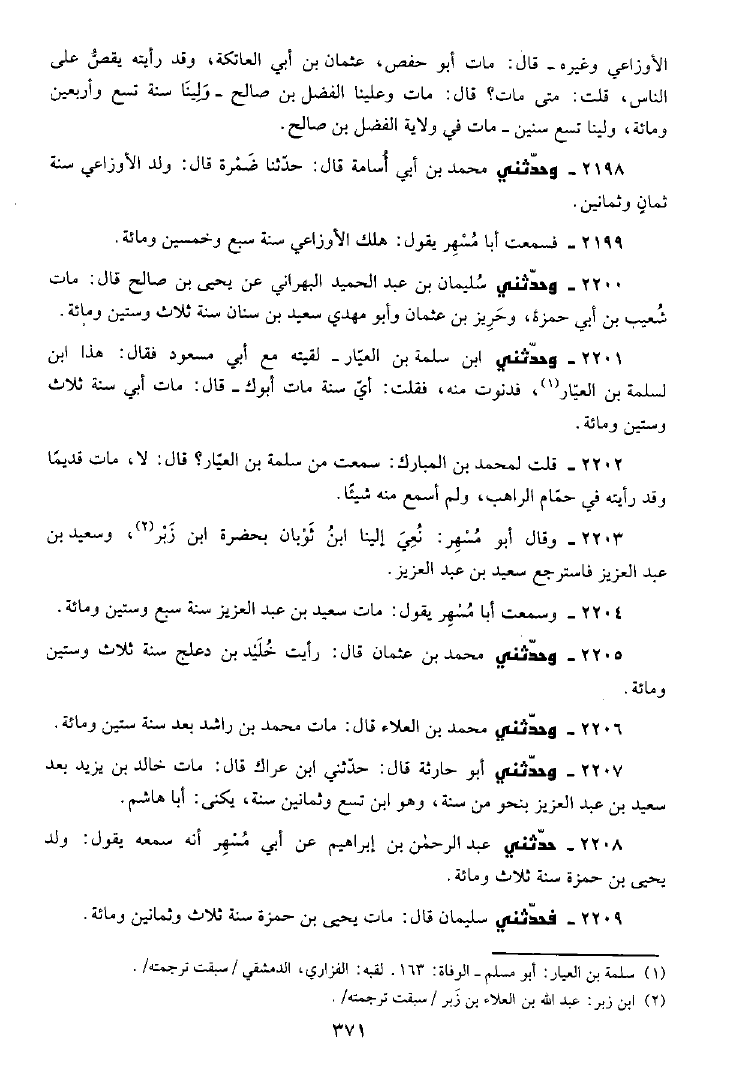 الأوزاعي وغيره ـ قال: مات أبو حفص، عثمان بن أبي العاتكة، وقد رأيته يقصُّ على
الناس، قلت: متى مات؟ قال: مات وعلينا الفضل بن صالح ـ وَلِينَا سنة تسع وأربعين
ومائة، ولينا تسع سنين ـ مات في ولاية الفضل بن صالح.
٢١٩٨ ـ وحدّثني محمد بن أبي أُسامة قال: حدّثنا ضَمْرة قال: ولد الأوزاعي سنة
ثمانٍ وثمانين.
٢١٩٩ ـ فسمعت أبا مُسْهِر يقول: هلك الأوزاعي سنة سبع وخمسين ومائة.
٢٢٠٠ ـ وحدّثني سُليمان بن عبد الحميد البهراني عن يحيى بن صالح قال: مات
شُعيب بن أبي حمزة، وحَرِيز بن عثمان وأبو مهدي سعيد بن سنان سنة ثلاث وستين ومائة.
٢٢٠١ ـ وحدّثني ابن سلمة بن العيّار ـ لقيته مع أبي مسعود فقال: هذا ابن
لسلمة بن العيّار(١)، فدنوت منه، فقلت: أيّ سنة مات أبوك ـ قال: مات أبي سنة ثلاث
وستين ومائة.
٢٢٠٢ ـ قلت لمحمد بن المبارك: سمعت من سلمة بن العيّار؟ قال: لا، مات قديمًا
وقد رأيته في حمّام الراهب، ولم أسمع منه شيئًا.
٢٢٠٣ ـ وقال أبو مُسْهِر: نُعِيَ إلينا ابنُ ثَوْبان بحضرة ابن زَبْر(٢)، وسعيد بن
عبد العزيز فاسترجع سعيد بن عبد العزيز.
٢٢٠٤ ـ وسمعت أبا مُسْهِر يقول: مات سعيد بن عبد العزيز سنة سبع وستين ومائة.
٢٢٠٥ ـ وحدّثني محمد بن عثمان قال: رأيت خُلَيْد بن دعلج سنة ثلاث وستين
ومائة.
٢٢٠٦ ـ وحدّثني محمد بن العلاء قال: مات محمد بن راشد بعد سنة ستين ومائة.
٢٢٠٧ ـ وحدّثني أبو حارثة قال: حدّثني ابن عراك قال: مات خالد بن يزيد بعد
سعيد بن عبد العزيز بنحو من سنة، وهو ابن تسع وثمانين سنة، يكنى: أبا هاشم.
٢٢٠٨ ـ حدّثني عبد الرحمٰن بن إبراهيم عن أبي مُسْهِر أنه سمعه يقول: ولد
يحيى بن حمزة سنة ثلاث ومائة.
٢٢٠٩ ـ فحدّثني سليمان قال: مات يحيى بن حمزة سنة ثلاث وثمانين ومائة.
(١) سلمة بن العيار: أبو مسلم ـ الوفاة: ١٦٣. لقبه: الفزاري، الدمشقي /سبقت ترجمته/.
(٢) ابن زبر: عبد الله بن العلاء بن زَبر /سبقت ترجمته/.
٣٧١